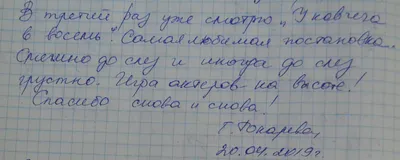 В третий раз уже смотрю „У ковчега
в восемь". Самая любимая постановка.
Смешно до слез и иногда до слез
грустно. Игра актеров - на высоте!
Спасибо снова и снова!
Г. Токарева,
20.04.2019г.